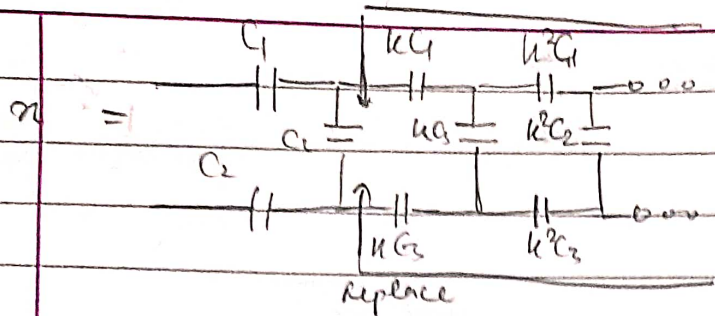 C₁ kC₁ k²C₁
x =
C₂ kC₃ k²C₂
C₂
kC₃ k²C₃
Replace